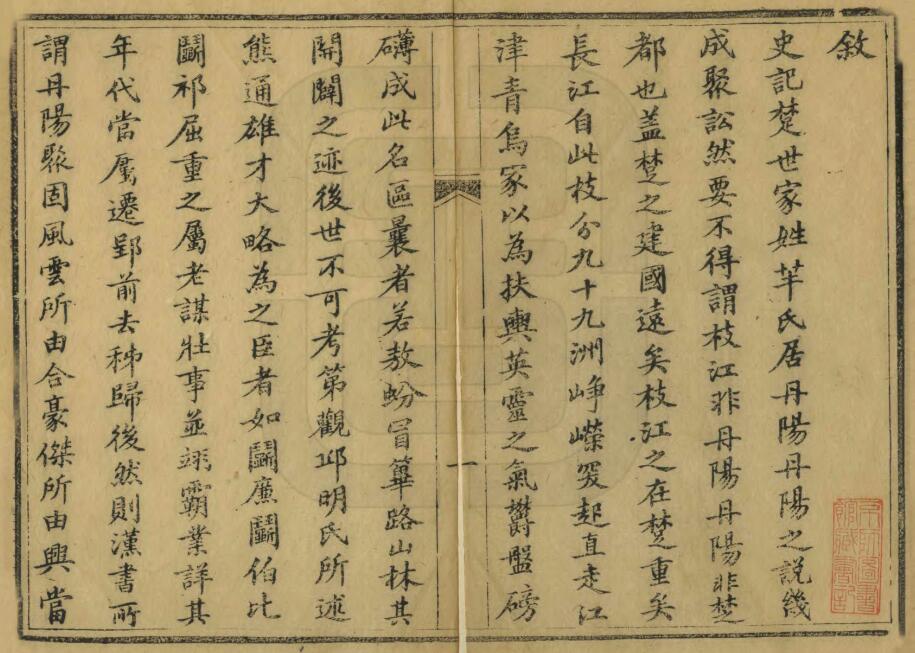 敘
史記楚世家姓芈氏居丹陽丹陽之説幾
成聚訟然要不得謂枝江非丹陽丹陽非楚
都也盖楚之建國遠矣枝江之在楚重矣
長江自此枝分九十九洲崢嶸突起直走江
津青烏家以為扶輿英靈之氣鬱盤磅
礴成此名區曩者若敖蚡冒篳路山林其
開闢之迹後世不可考第觀邱明氏所述
熊通雄才大略為之臣者如鬭廉鬭伯比
鬭祁屈重之屬老謀壯事並翊霸業詳其
年代當屬遷郢前去秭歸後然則漢書所
謂丹陽聚固風雲所由合豪傑所由興當
一